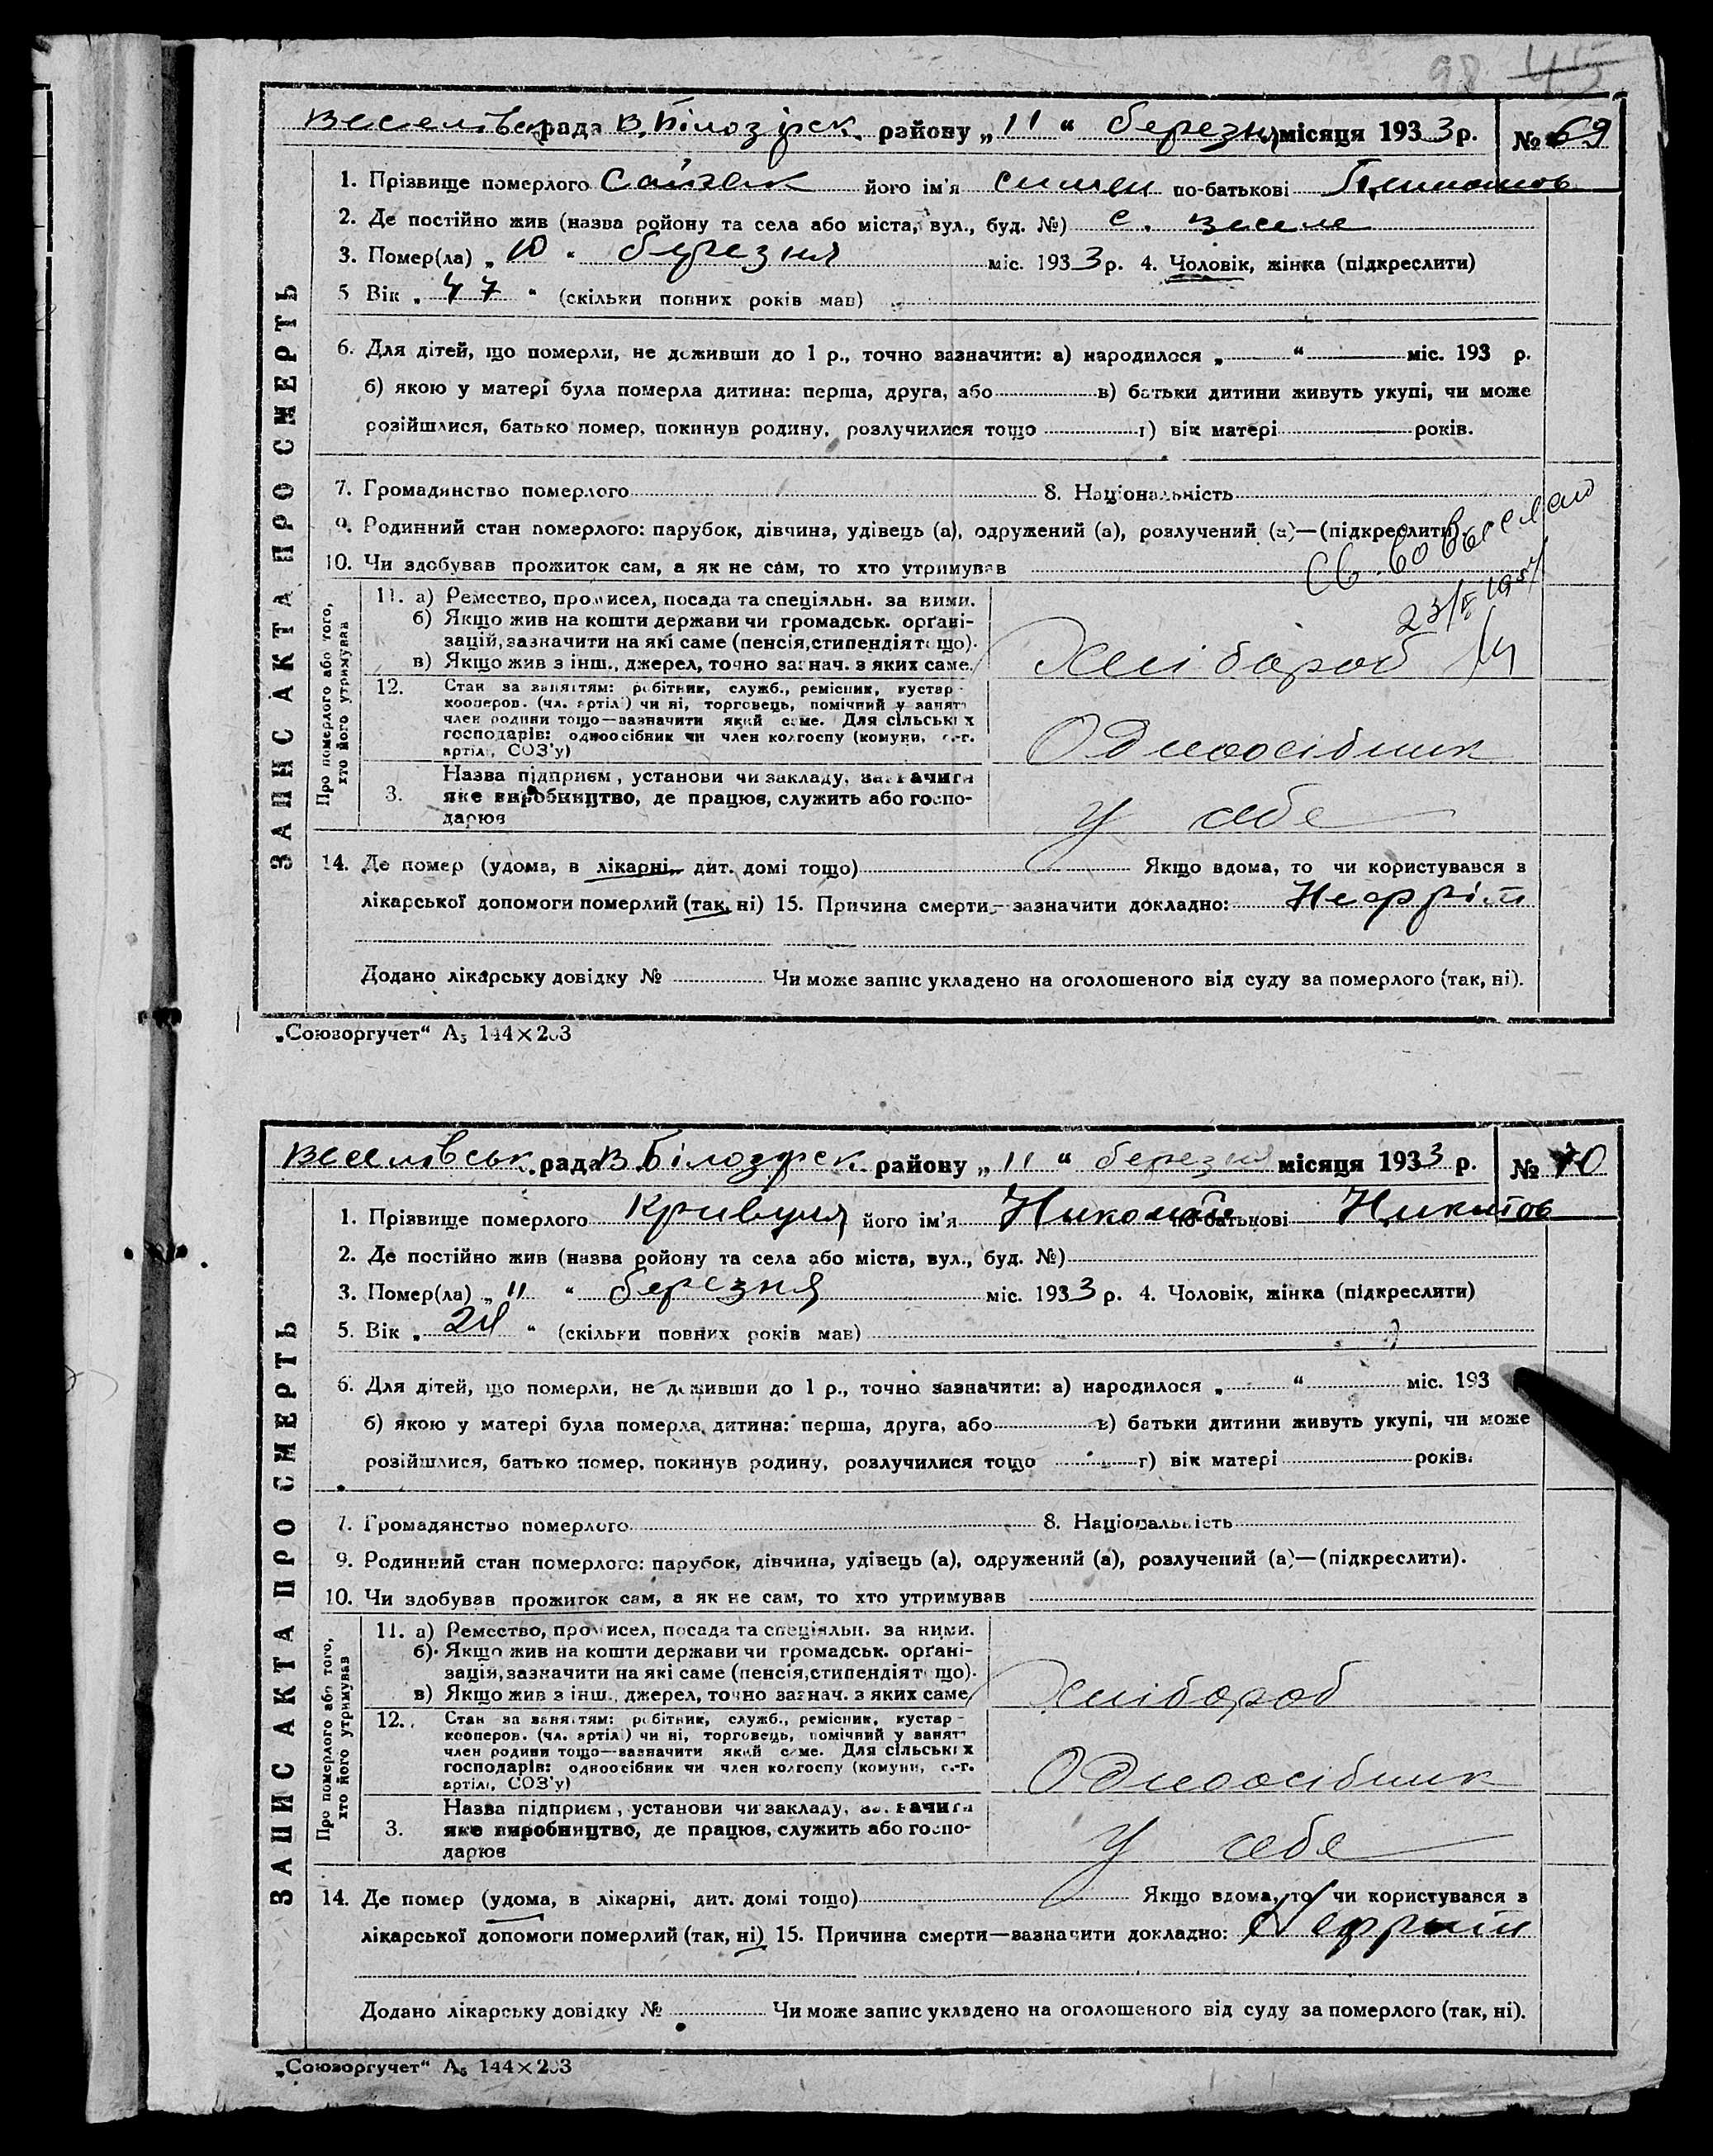 98 45
Веселівськ рада В. Білозірск. району „ 11 “ березня місяця 1933 р. № 69
1. Прізвище померлого його ім'я Симен по-батькові
2. Де постійно жив (назва ройону та села або міста, вул., буд. №) с. Веселе
3. Помер(ла) „ 10 “ березня міс. 1933 р. 4. Чоловік, жінка (підкреслити)
5 Вік „ 47 “ (скільки повних років мав)
6. Для дітей, що померли, не доживши до 1 р., точно зазначити: а) народилося „ “ міс. 193 р.
б) якою у матері була померла дитина: перша, друга, або в) батьки дитини живуть укупі, чи може
розійшлися, батько помер, покинув родину, розлучилися тощо г) вік матері років.
7. Громадянство померлого 8. Національність
9. Родинний стан померлого: парубок, дівчина, удівець (а), одружений (а), розлучений (а)—(підкреслити).
10. Чи здобував прожиток сам, а як не сам, то хто утримував
Св-во выслано
11. а) Ремество, промисел, посада та спеціяльн. за ними.
б) Якщо жив на кошти держави чи громадськ. орґані-
зацій, зазначити на які саме (пенсія, стипендія тощо).
в) Якщо жив з інш., джерел, точно зазнач. з яких саме.
Хлібороб
12. Стан за заняттям: робітник, служб., ремісник, кустар-
кооперов. (чл. артілі) чи ні, торговець, помічний у занятт
член родини тощо—зазначити який саме. Для сільських
господарів: одноосібник чи член колгоспу (комуни, с.-г.
артілі, СОЗ'у)
Одноосібник
Назва підприєм, установи чи закладу, зазначити
3. яке виробництво, де працює, служить або госпо-
дарює
У себе
14. Де помер (удома, в лікарні, дит. домі тощо) Якщо вдома, то чи користувався з
лікарської допомоги померлий (так, ні) 15. Причина смерти—зазначити докладно: Нефріт
Додано лікарську довідку № Чи може запис укладено на оголошеного від суду за померлого (так, ні).
ЗАПИС АКТА ПРО СМЕРТЬ
Про померлого або того,
хто його утримував
„Союзоргучет“ А5 144×203
Веселівськ. рада В. Білозірск. району „ 11 “ березня місяця 1933 р. № 70
1. Прізвище померлого Кривуля його ім'я Николай по-батькові Никитов
2. Де постійно жив (назва ройону та села або міста, вул., буд. №)
3. Помер(ла) „ 11 “ березня міс. 1933 р. 4. Чоловік, жінка (підкреслити)
5. Вік „ “ (скільки повних років мав)
6. Для дітей, що померли, не доживши до 1 р., точно зазначити: а) народилося „ “ міс. 193
б) якою у матері була померла дитина: перша, друга, або в) батьки дитини живуть укупі, чи може
розійшлися, батько помер, покинув родину, розлучилися тощо г) вік матері років.
7. Громадянство померлого 8. Національність
9. Родинний стан померлого: парубок, дівчина, удівець (а), одружений (а), розлучений (а)—(підкреслити).
10. Чи здобував прожиток сам, а як не сам, то хто утримував
11. а) Ремество, промисел, посада та спеціяльн. за ними.
б) Якщо жив на кошти держави чи громадськ. орґані-
зація, зазначити на які саме (пенсія, стипендія тощо).
в) Якщо жив з інш., джерел, точно зазнач. з яких саме
Хлібороб
12. Стан за заняттям: робітник, служб., ремісник, кустар-
кооперов. (чл. артілі) чи ні, торговець, помічний у занятт
член родини тощо—зазначити який саме. Для сільських
господарів: одноосібник чи член колгоспу (комуни, с.-г.
артілі, СОЗ'у)
Одноосібник
Назва підприєм, установи чи закладу, зазначити
3. яке виробництво, де працює, служить або госпо-
дарює
У себе
14. Де помер (удома, в лікарні, дит. домі тощо) Якщо вдома, то чи користувався з
лікарської допомоги померлий (так, ні) 15. Причина смерти—зазначити докладно: Нефрит
Додано лікарську довідку № Чи може запис укладено на оголошеного від суду за померлого (так, ні).
ЗАПИС АКТА ПРО СМЕРТЬ
Про померлого або того,
хто його утримував
„Союзоргучет“ А5 144×203